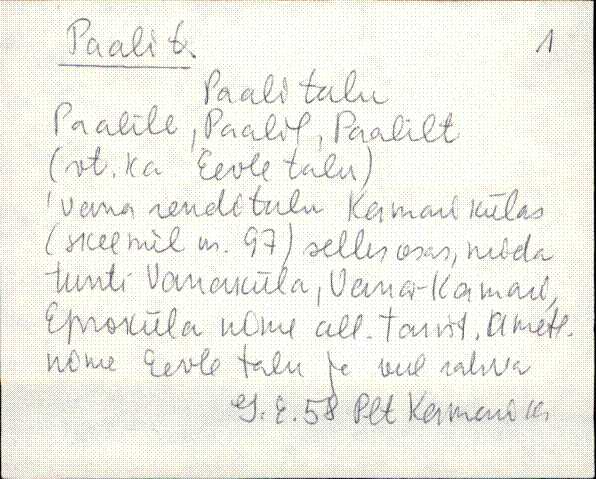 Paali t. 1
Paali talu
Paalile, Paalil, Paalilt
(vt. ka Eevle talu)
vana renditalu Kamari külas
(skeemil nr. 97) selles osas, mida
tunti Vanaküla, Vana-Kamari,
Eproküla nime all. Tarvit. ametl.
nime Eevle talu ja vel rahva
E. 58 Plt Kamari k.